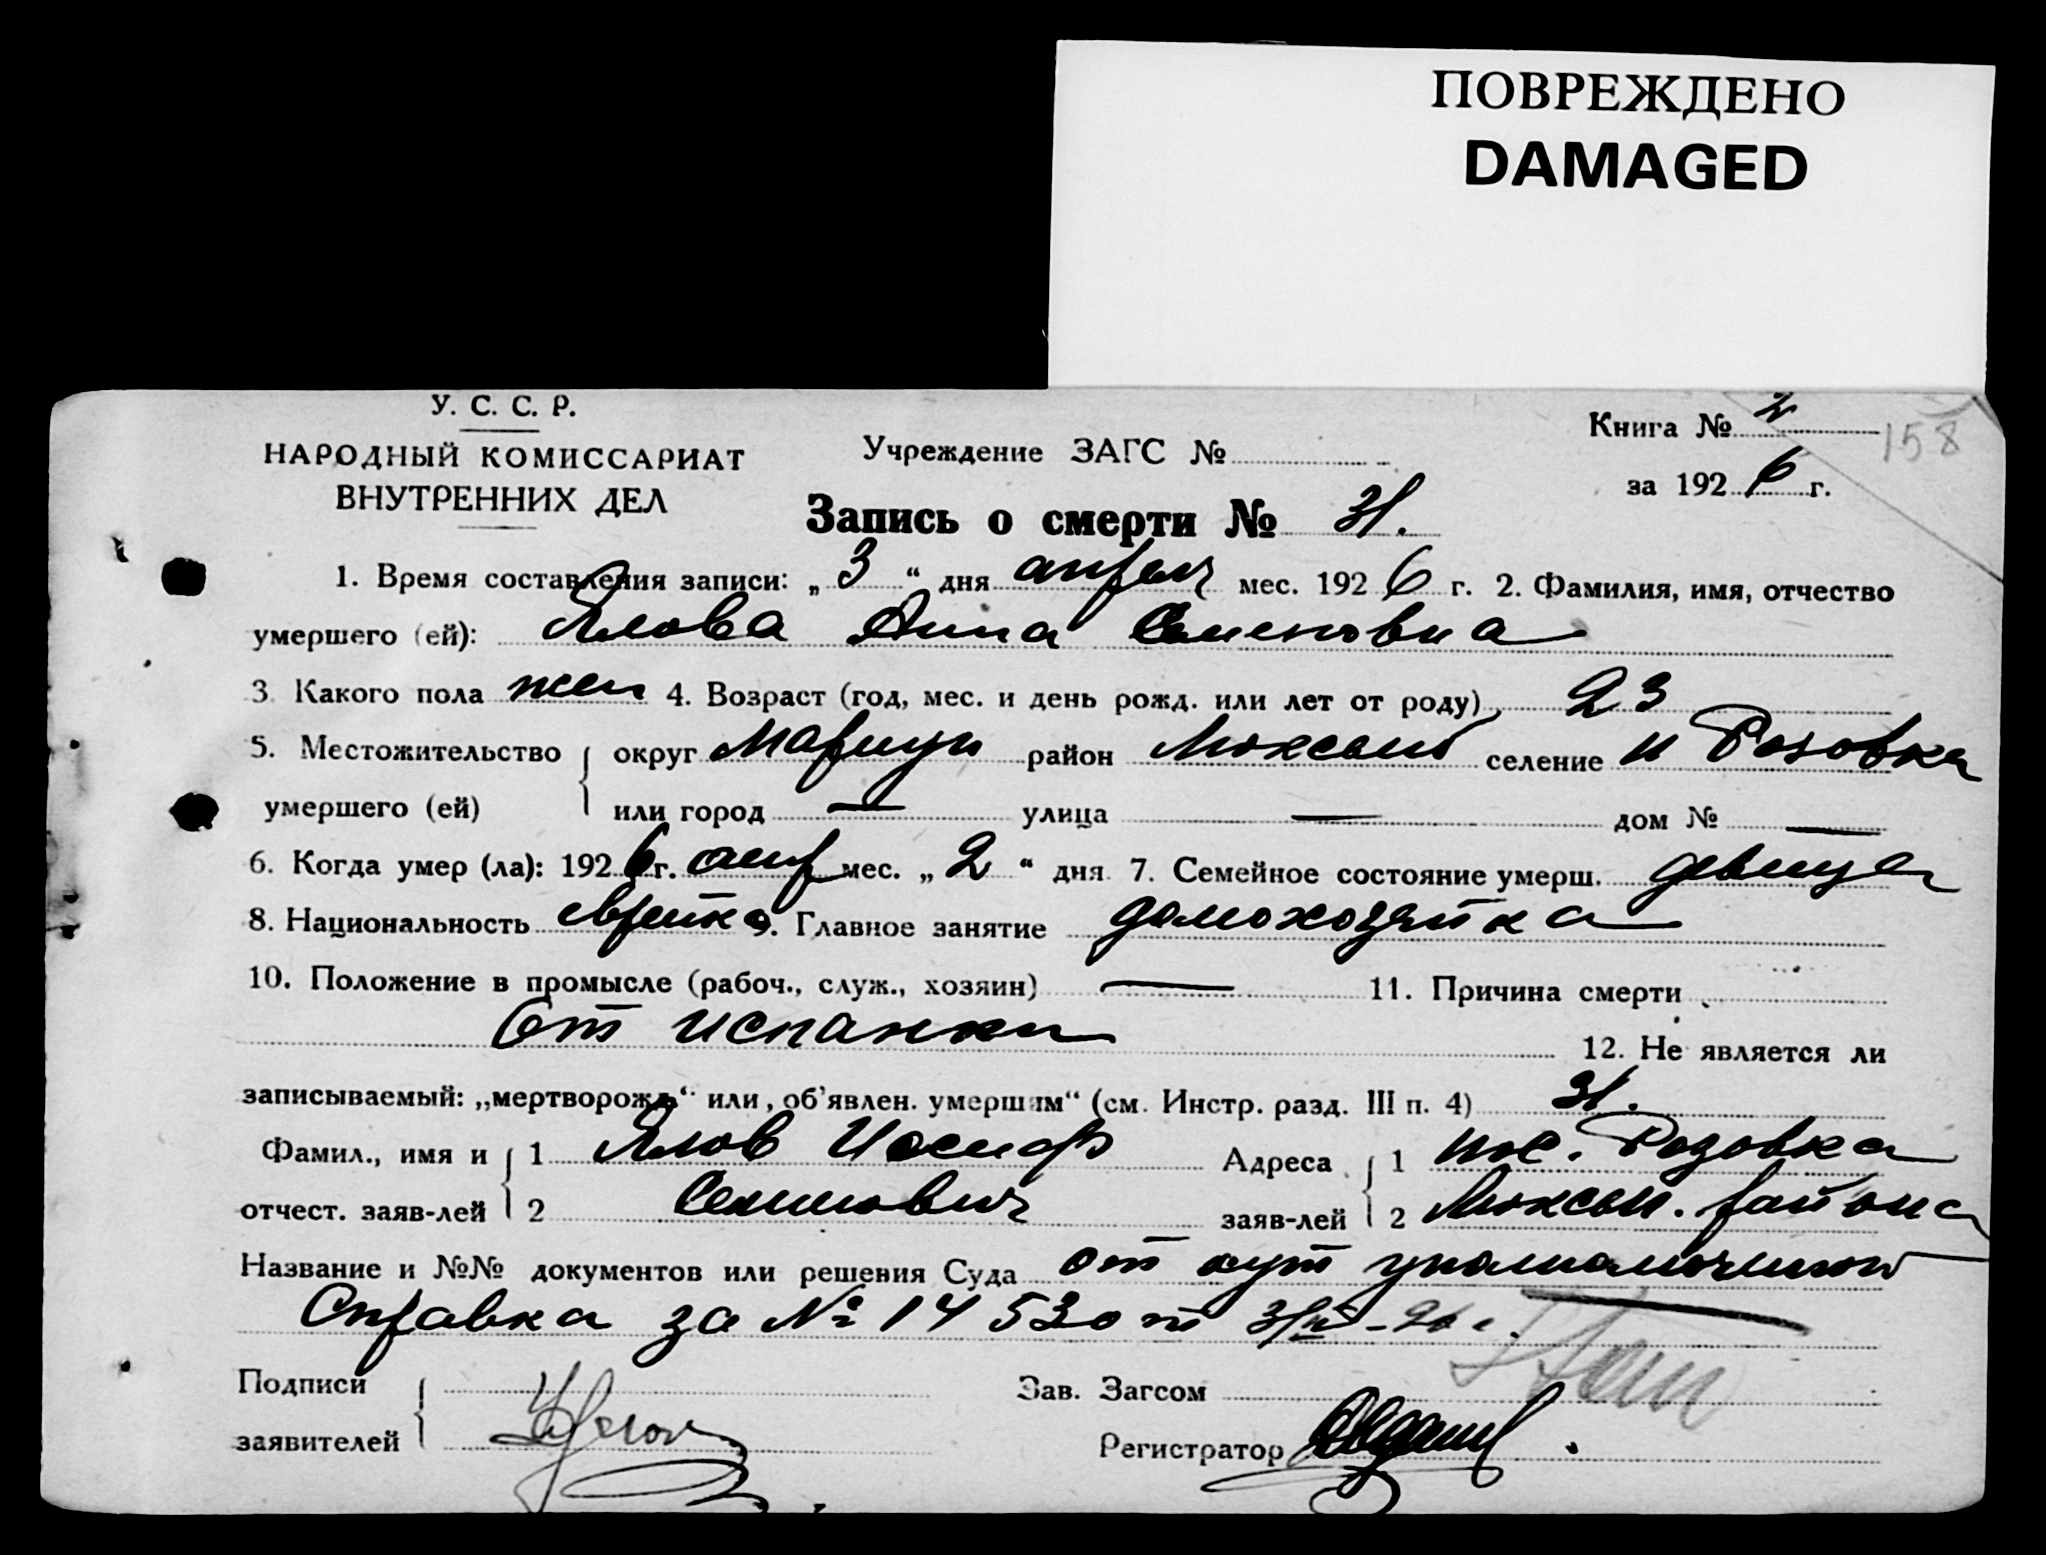 ПОВРЕЖДЕНО
DAMAGED
У. С. С. Р.
НАРОДНЫЙ КОМИССАРИАТ
ВНУТРЕННИХ ДЕЛ
Учреждение ЗАГС №
Книга № 2
158
за 1926 г.
Запись о смерти № 31.
1. Время составления записи: „3“ дня апреля мес. 1926 г. 2. Фамилия, имя, отчество
умершего (ей): Ялова Анна Семеновна
3. Какого пола жен 4. Возраст (год, мес. и день рожд. или лет от роду) 23
5. Местожительство округ Мариуп район Люксемб селение п Розовка
умершего (ей) или город — улица — дом № —
6. Когда умер (ла): 1926 г. апр мес. „2“ дня 7. Семейное состояние умерш. девица
8. Национальность еврейка 9. Главное занятие домохозяйка
10. Положение в промысле (рабоч., служ., хозяин) — 11. Причина смерти
От испанки 12. Не является ли
записываемый: „мертворожд“ или „об'явлен. умершим“ (см. Инстр. разд. III п. 4)
Фамил., имя и 1 Ялов Иосиф Адреса 1 пос. Розовка
отчест. заяв-лей 2 Семенович заяв-лей 2 Люксем. района
Название и №№ документов или решения Суда от
Справка за № 14530 от
Подписи Зав. Загсом
заявителей Регистратор